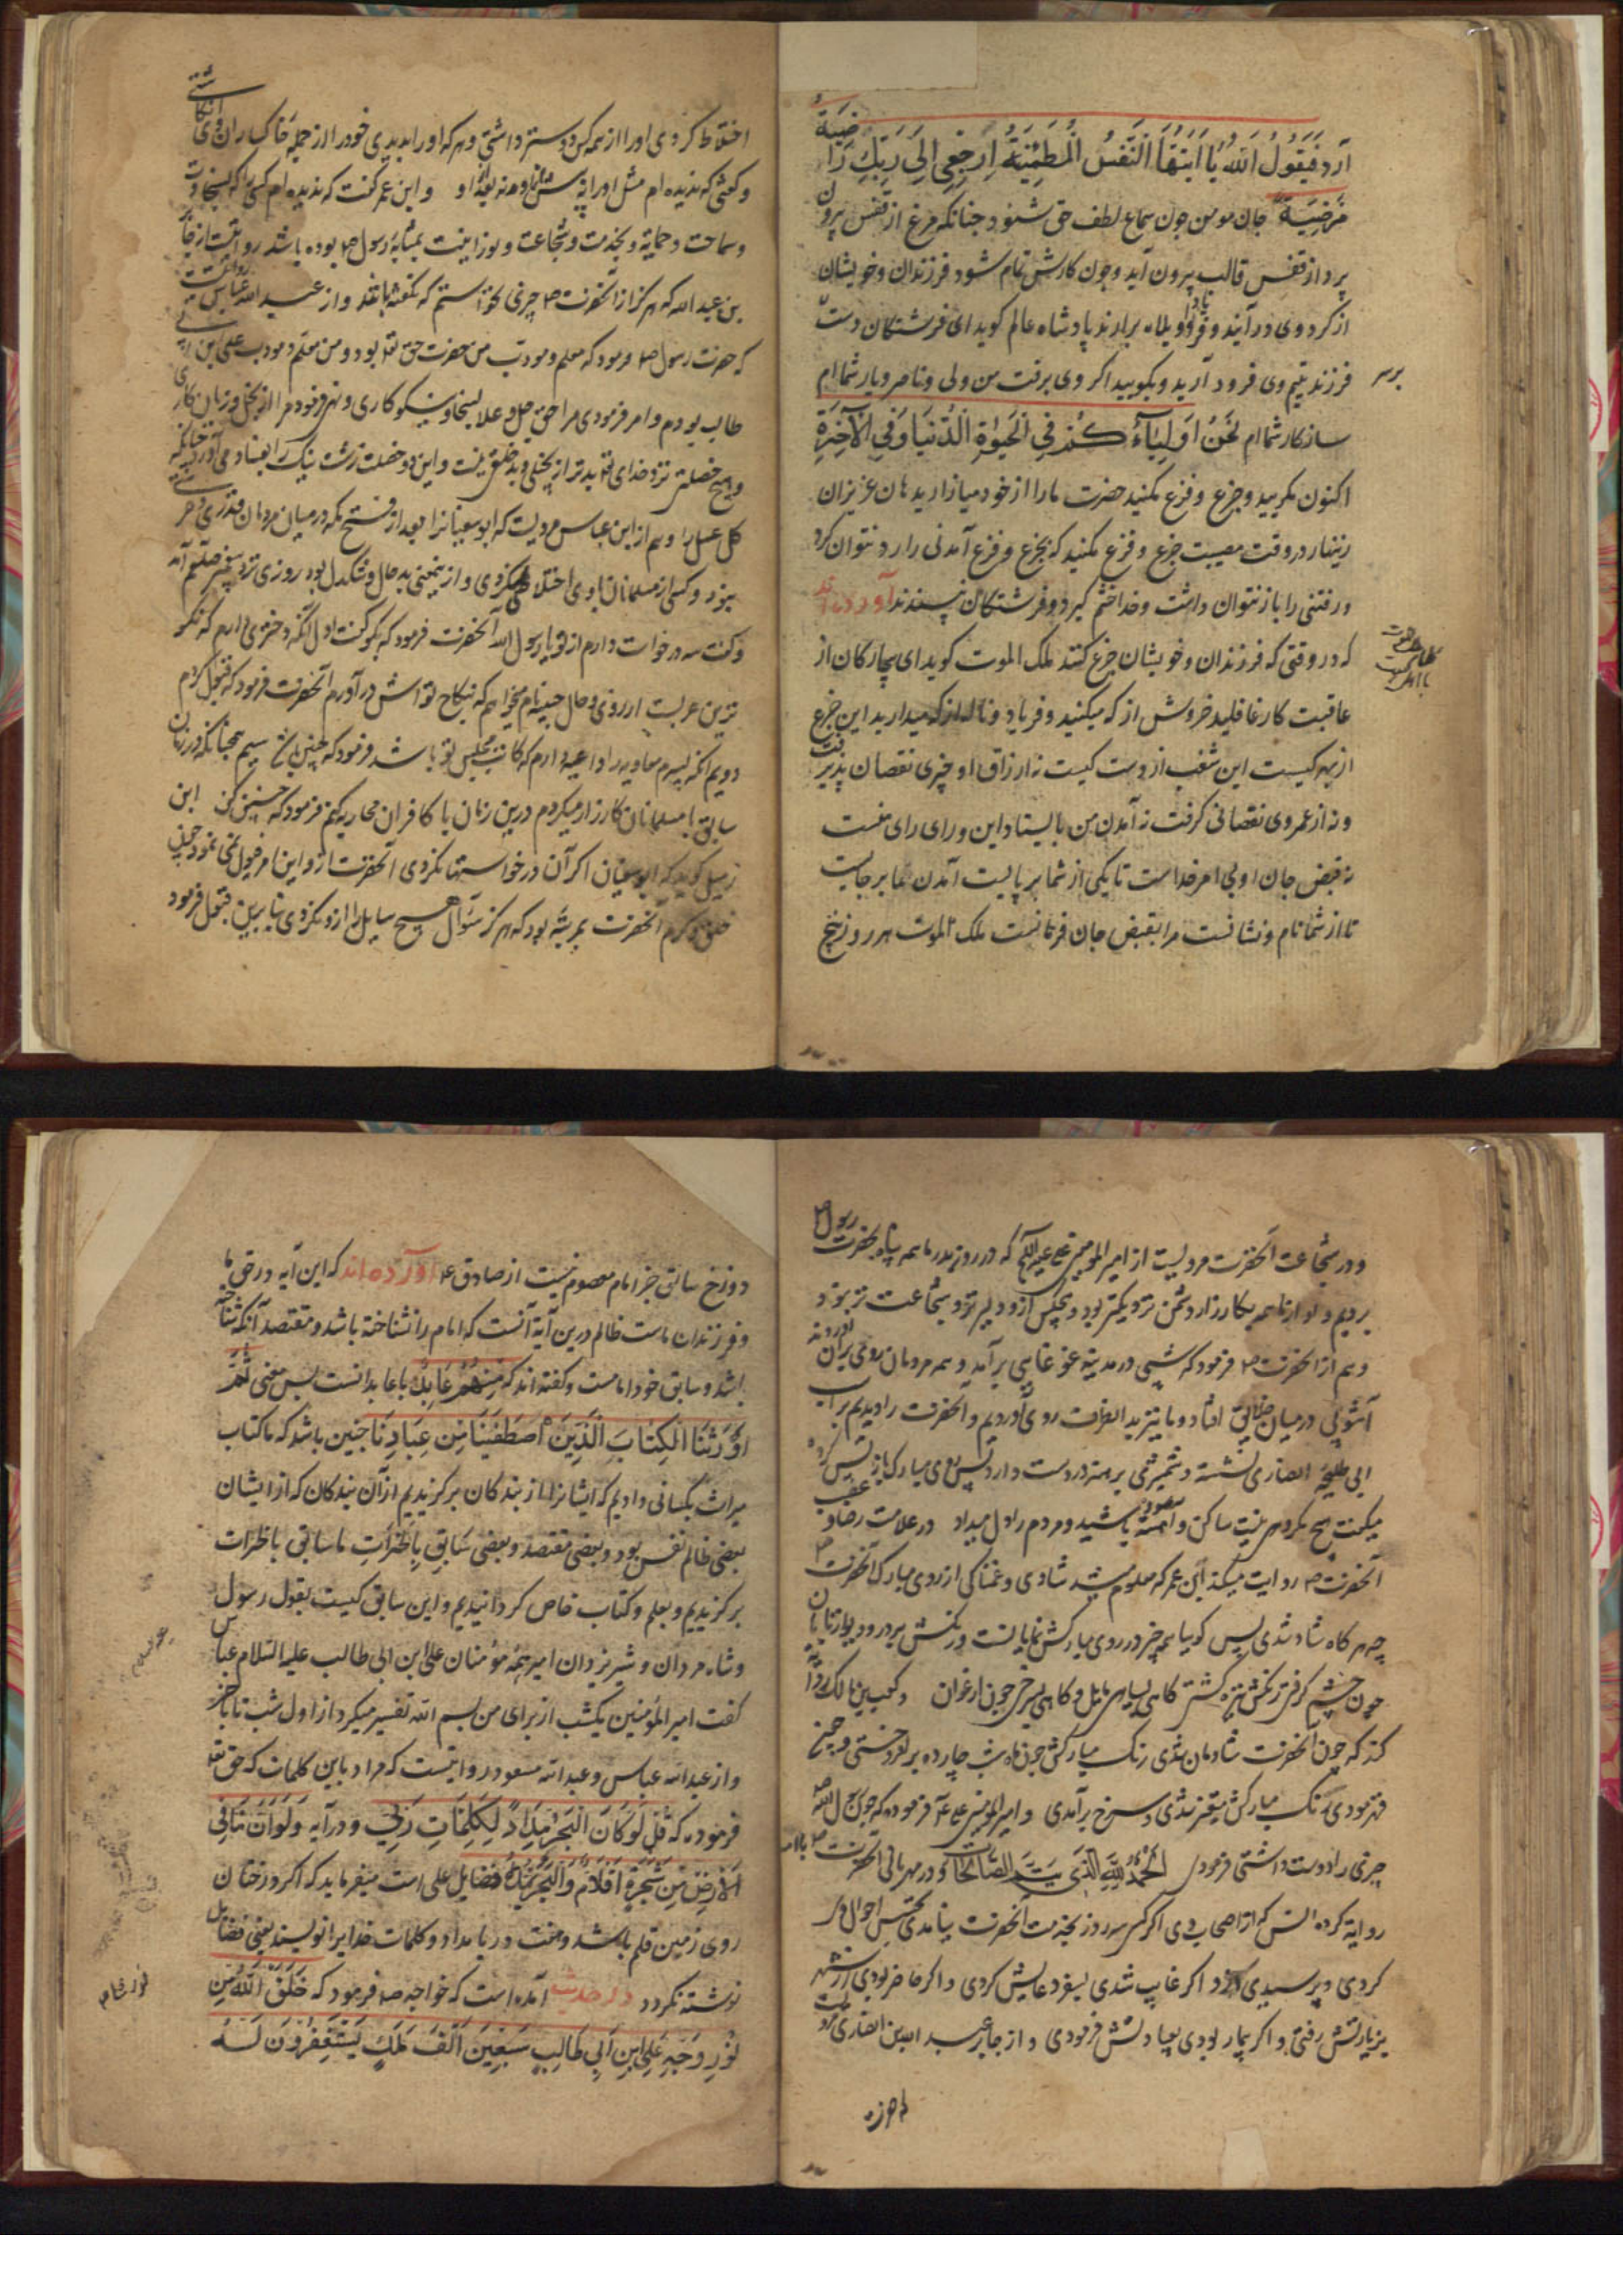 آرد فَيَقُولُ اللّهُ يَا اَيَّتُهَا النَّفْسُ الْمُطْمَئِنَّةُ اِرْجِعِي اِلَى رَبِّكِ رَاضِيَةً
مَرْضِيَّةً جان مومن چون سماع لطف حق شنود چنانكه مرغ از قفس بيرون
پرد از قفس قالب بيرون آيد و چون كارش تمام شود فرزندان و خويشان
از كرد وى در آيند و فرياد و اويلاه برارند پادشاه عالم كويد اى فرشتكان دست
بر سر فرزند يتيم وى فرود آريد و بكوييد اكر وى برفت من ولى و ناصر و يار شماام
سازكار شماام نَحْنُ اَوْلِيَاءُكُمْ فِي الْحَيٰوةِ الدُّنْيَا وَفِي الْآخِرَةِ
اكنون مكرييد و جزع و فزع مكنيد حضرت ما را از خود ميازاريد هان عزيزان
زينهار در وقت مصيبت جزع و فزع مكنيد كه بجزع و فزع آمدنى را رد نتوان كرد
و رفتنى را باز نتوان داشت و خدا خشم كيرد و فرشتكان نپسندند آورده اند
كه در وقتى كه فرزندان و خويشان جزع كنند ملك الموت كويد اى بيچاركان از
عاقبت كار غافليد خروش از كه ميكنيد و فرياد و ناله از كه ميداريد اين جزع
از بهر كيست اين شغب از دست كيست نه از رزاق او چيزى نقصان پذيرفت
و نه از عمر وى نقصانى كرفت نه آمدن من بايستاد اين و راى راى منست
نه قبض جان او بى امر خداست تا يكى از شما بر پايست آمدن ما بر جايست
تا از شما نام و نشانست مرا بقبض جان فرمانست ملك الموت هر روز پنج
اختلاط كردى او را از همه كس دوستر داشتى و هر كه او را بديدى خود را از جمله خاكساران وى انكاشتى
و كفتى كه نديده ام مثل او را نه و نه او و ابن عمر كفت كه نديده ام كسى را كه بسخاوت
و سماحت و حمايه و بخدمت و شجاعت و نورانيت بمثابه رسول ص بوده باشد روايتست از جابر
بن عبد الله كه هركز از آنحضرت ص چيزى نخواستم كه نكفته باشد و از عبد الله عباس روايتست
كه حضرت رسول ص فرمود كه معلم و مودب من حضرت حق تع بود و من معلم و مودب على بن ابى
طالب بودم و امر فرمودى مرا حق جل و علا بسخا و نيكوكارى و نهى فرمود مرا از بخل و زيان كارى
و هيچ خصلتى نزد خداى تع بدتر از بخيلى و بد خلقى نيست و اين دو خصلت زشت نيك را بفساد مى آورد چنانكه
كل عسل را و هم از ابن عباس مرويست كه ابو سفيانرا بعد از فتح مكه در ميان مردمان قدرى و حرمتى
نبود و كسى از مسلمانان با وى اختلاط نكردى و از ينمعنى بد حال و تنكدل بود روزى نزد پيغمبر صلعم آمد
و كفت سه درخواست دارم از تو يا رسول الله آنحضرت فرمود كه بكو كفت اول آنكه دخترى دارم كه نيكو
ترين عربست از روى و حال ميخواهم كه بنكاح تو اش در آورم آنحضرت فرمود كه قبول كردم
دويم آنكه پسرم معاويه را داعيه دارم كه كاتب مجلس تو باشد فرمود كه چنين باش سيم همچنانكه در زمان
سابق با مسلمانان كارزار ميكردم درين زمان با كافران محاربه كنم فرمود كه چنين كن ابن
زميل كويد كه ابو سفيان اكر آن درخواستها نكردى آنحضرت از و اين امر قبول نمى نمود چه
خلق و كرم آنحضرت بمرتبه بود كه هركز سؤال هيچ سايل را رد نكردى بنا برين قبول فرمود
و در شجاعت آنحضرت مرويست از امير المومنين على عليه السلم كه در روز بدر ما همه پناه بحضرت رسول ص
برديم و او از ما همه بكارزار و دشمن نزديكتر بود و هيچكس ازو دلير تر و شجاعت تر نبود
و هم از آنحضرت ص فرمود كه شبى در مدينه غوغايى بر آمد و همه مردمان روى بران آوردند
آشوبى در ميان خلايق افتاد و ما نيز بدانطرف روى آورديم و آنحضرت را ديديم بر اسب
ابى طلحه انصارى نشسته و شمشيرى برهنه در دست دارد پس روى مبارك باز پس كرده
ميكفت هيچ مكرديد نيست ساكن و آهسته باشيد و مردم را دل ميداد در علامت رضا و غضب
آنحضرت ص روايت ميكند ابن عمر كه معلوم ميشد شادى و غمناكى از روى مبارك آنحضرت ص
چه هر كاه شاد شدى پس كوييا همه چيز در روى مباركش نمايانست و رنكش بر در و ديوار تابان
چون خشم كرفتى رنكش تيره كشتى كاهى بسياهى مايل و كاهى بسرخى چون ارغوان و كعب بن مالك روايه
كند كه چون آنحضرت شادمان شدى رنك مباركش چون ماه شب چارده برافروختى و چون
قهر نمودى رنك مباركش متغير شدى و سرخ بر آمدى و امير المومنين على ع فرموده كه چون رسول الله ص
چيزى را دوست داشتى فرمودى الحمد لله الذى بنعمته تتم الصالحات و در مهربانى آنحضرت ص با امت
روايه كرده انس كه از اصحاب وى اكر كسى سه روز بخدمت آنحضرت نيامدى تجسس احوال وى
كردى و پرسيدى و اكر غايب شدى بسفر دعايش كردى و اكر حاضر بودى در شهر
بزيارتش رفتى و اكر بيمار بودى بعيادتش فرمودى و از جابر عبد الله بن انصارى
دوزخ سابق جز امام معصوم نيست از صادق ع آورده اند كه اين آيه در حق ما
و فرزندان ماست ظالم درين آيه آنست كه امام را نشناخته باشد و مقتصد آنكه شناخته
باشد و سابق خود امامست و كفته اند كه مِنْهُمْ عَايِد با عابد آنست پس معنى ثُمَّ
اَوْرَثْنَا الْكِتَابَ الَّذِينَ اصْطَفَيْنَا مِنْ عِبَادِنَا چنين باشد كه ما كتاب
ميراث بكسانى داديم كه ايشانرا از بندكان بركزيديم از آن بندكان كه از ايشان
بعضى ظالم نفس بود و بعضى مقتصد و بعضى سَابِق بِالْخَيْرَاتِ ما سابق با خيرات
بركزيديم و بعلم و كتاب خاص كردانيديم و اين سابق كيست بقول رسول
و شاه مردان و شير يزدان امير همه مؤمنان على ابن ابى طالب عليه السلام عباس
كفت امير المؤمنين يكشب از براى من بسم الله تفسير ميكرد از اول شب تا باخر
و از عبد الله عباس و عبد الله مسعود روايتست كه مراد باين كلمات كه حق تع
فرموده كه قُلْ لَوْ كَانَ الْبَحْرُ مِدَادًا لِكَلِمَاتِ رَبِّي و در آيه وَلَوْ اَنَّ مَا فِي
الْاَرْضِ مِنْ شَجَرَةٍ اَقْلَامٌ وَالْبَحْرُ يَمُدُّهُ فضايل على است ميفرمايد كه اكر درختان
روى زمين قلم باشد و هفت دريا مداد و كلمات خدايرا نويسند يعنى فضايل
نوشته نكردد در حديث آمده است كه خواجه ص فرمود كه خَلَقَ اللّهُ مِنْ
نُورِ وَجْهِ عَلِيِّ ابْنِ اَبِي طَالِبٍ سَبْعِينَ اَلْفَ مَلَكٍ يَسْتَغْفِرُونَ لَهُ